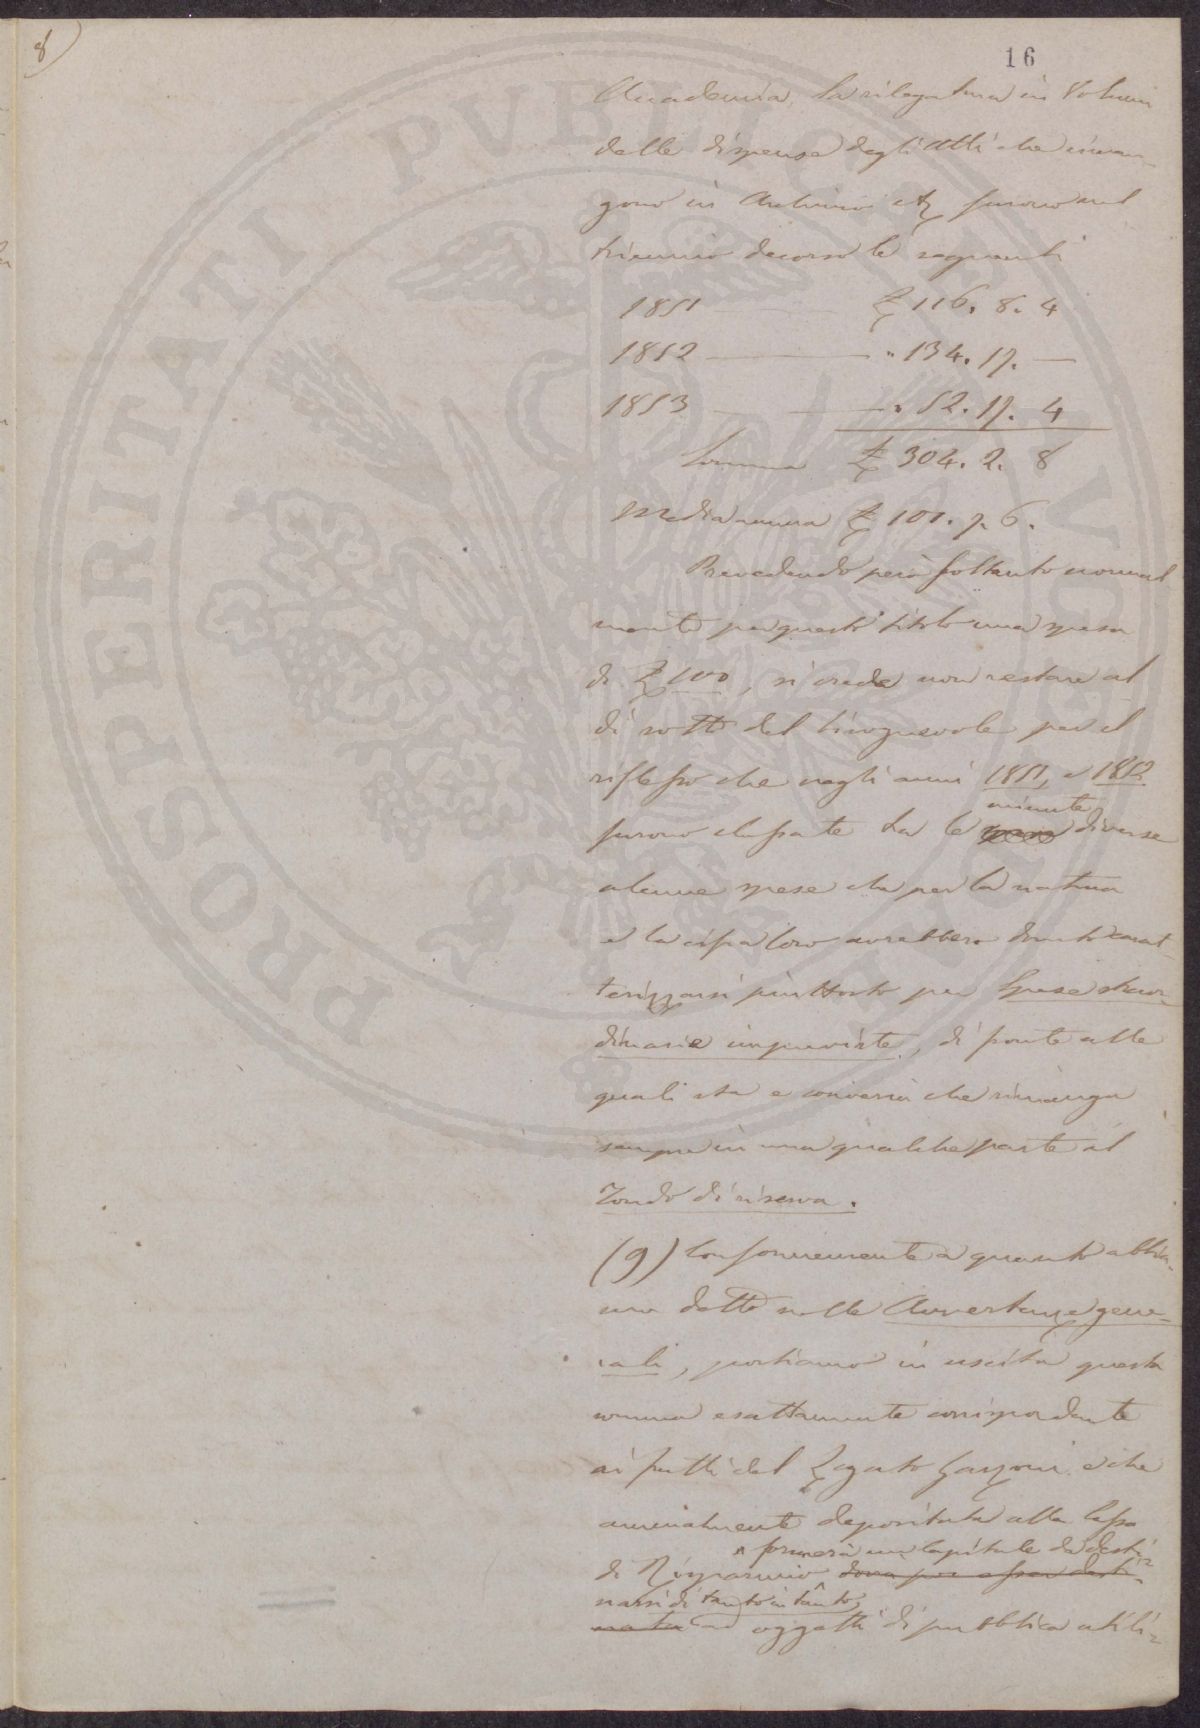 8)
16
Accademia, la rilegatura in Volumi
delle dispense degli Atti che riman-
gono in Archivio etc. furono nel
triennio decorso le seguenti
1851 £ 116. 8. 4
1852 " 134. 17. —
1853 " 52. 17. 4
Somma £ 304. 2. 8
Media annua £ 101. 7. 6.
Prevedendo però soltanto normal
mente per questo titolo una spesa
di £ 100, si crede non restare al
di sotto del bisognevole per il
riflesso che negli anni 1851, e 1852
minute
furono classate tra le spese diverse
alcune spese che per la natura
e la cifra loro avrebbero dovuto carat
terizzarsi piuttosto per Spese straor-
dinarie impreviste, di fronte alle
quali sta e conviene che rimanga
sempre in una qualche parte il
Fondo di riserva.
(9) Conformemente a quanto abbia-
mo detto nelle Avvertenze gene-
rali, portiamo in uscita questa
somma esattamente corrispondente
ai frutti del Legato Garzoni, e che
annualmente depositata alla Cassa
formerà un Capitale da desti-
di Risparmio dovrà poi esser desti-
narsi di tanto in tanto,
nata ad oggetti di pubblica utili-
PROSPERITATI PUBLICAE AUGENDAE